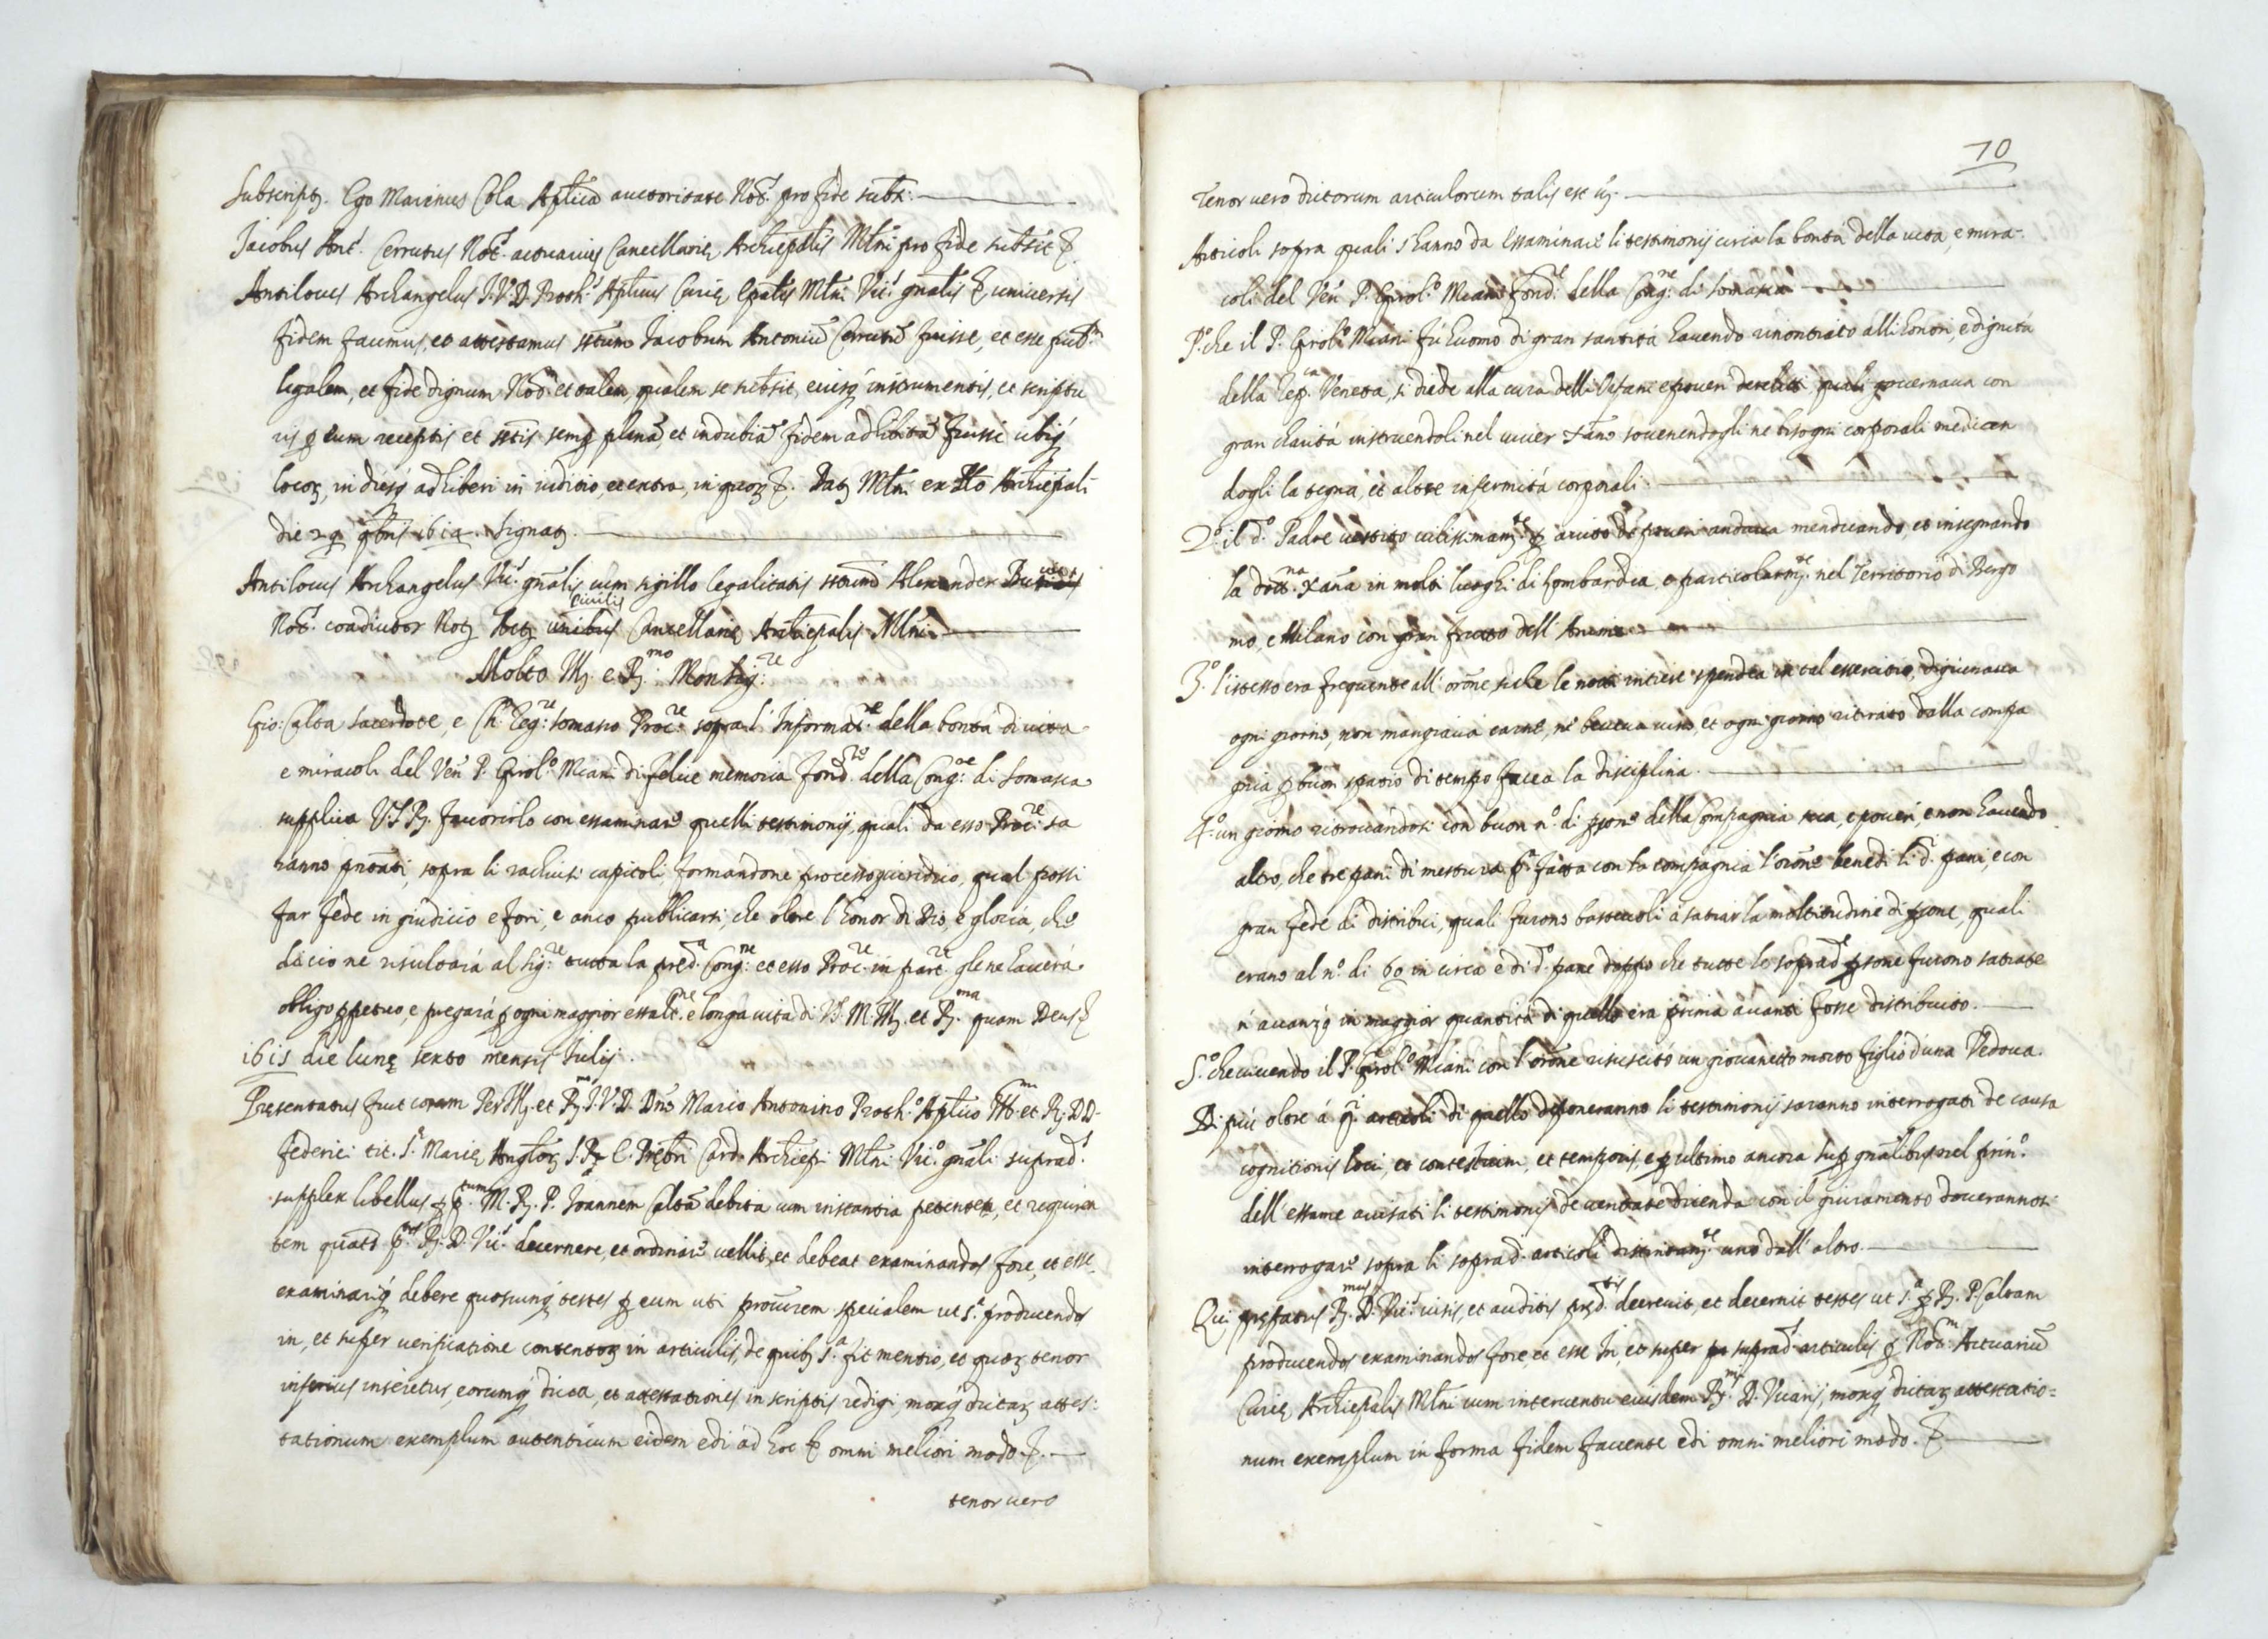 Subscript. Ego Marinus Cola Aplica auctoritate Not. pro fide subs.
Jacobus Ant. Cerrutus Not. actuarius Cancellarię Archiepalis Mlni pro fide subsit &.
Antilocus Archangelus J.V.D. Proth. Aplicus Curię Epalis Mlni Vic. gnalis & universis
fidem facimus, et attestamus sttum Jacobum Antoniū Cerrutū fuisse, et esse pub.
legalem, et fide dignum Not. et talem, qualem se subsit, eiusq instrumentis, et scriptu
ris p eum receptis et sttis semp planā et indubiā fidem adhibitā fuisse ubiq
locoꝝ, in diesq adhiberi in iuditio, et extra, in quoꝝ &. Dat Mlni ex Archiepali
die 29 9bris 1612. Signat.
Antilocus Archangelus Vic. gnalis cum sigillo legalitatis sttum Alexander
Not. coadiutor civilis Cancellarię Archiepalis Mlni.
Molto Ill. e R.mo Monsig.re
Gio: Calta sacerdote, e Ch. Reg.re Somasco Proc.re sopra l'Informat.ne della bontà di vita
e miracoli del Ven P. Girol.o Miani di felice memoria fond.re della Cong.ne di Somasca
supplica V.S.R. favorirlo con essaminare quelli testimonij, quali da esso Proc.re sa
ranno pntati, sopra li rachiusi capitoli, formandone processo giuridico, qual possi
far fede in giudicio e fori, e anco publicarsi, che oltre l'honor di Dio, e gloria, che
dacio ne risultarà al Sig.re tutta la pred.a Cong.ne et esso Proc.re in part.re gle ne haverà
obligo ppetuo, e pregarà p ogni maggior essalt.ne e longa vita di V.S. M. Ill. et R.ma quam Deus &
1615 die lunę sexto mensis Julij.
Pręsentatus fuit coram Per Ill. et R. J.V.D. Dno Mario Antonino Proth.o Aplico Ill.mi et R. DD.
Federici tit. S. Marię Angloꝝ S.R.E. Prębri Card. Archiepi Mlni Vic.o gnali suprad.
supplex libellus p p.tum M.R.P. Joannem Caltā debita cum instantia petentem, et requiren
tem quats p.tus R.D. Vic. decernere, et ordinare vellit, et debeat examinandos fore, et esse
examinariq debere quoscunq testes p eum uti procurem specialem ut s.a producendos
in, et super verificatione contentoꝝ in articulis, de quib s.a fit mentio, et quoꝝ tenor
inferius inseretur, eorumq dicta, et attestationes in scriptis redigi, moxq dictaꝝ attes:
tationum exemplum autenticum eidem edi ad hoc & omni meliori modo &.
tenor vero
70
Tenor vero dictorum articulorum talis est
Articoli sopra quali s'hanno da Essaminare li testimonij circa la bontà della vita, e mira-
coli del Ven P. Girol.o Miani fond.re della Cong.ne di Somasca
P.o che il P. Girol.o Miani fù huomo di gran santità havendo rinontiato alli honori, e dignità
della Rep.ca Veneta, si diede alla cura delli orfani e poveri derelitti quali governava con
gran charità instruendoli nel viver Xano sovenendogli ne bisogni corporali medican
dogli la tegna, et altre infermità corporali.
2.o il d.o Padre vestito vilissimam.te p aiuto de poveri andava mendicando, et insegnando
la dott.na Xana in molti luoghi di Lombardia, e particolarm.te nel Territorio di Berga
mo, e Milano con gran frutto dell'Anime
3.o l'istesso era frequente all'orōne siche le notti intiere spendea in tal essercitio, digiunava
ogni giorno, non mangiava carne, ne beveva vino, et ogni giorno ritirato dalla compa
gnia p buon spatio di tempo facea la disciplina.
4.o un giorno ritrovandosi con buon n.o di psone della Compagnia sua, e poveri, e non havendo
altro, che tre pani di mestura p. fatta con la compagnia l'orōne benedì li d. pani, e con
gran fede li distribuì, quali furono bastevoli à satiar la moltitudine di psone, quali
erano al n.o di 60 in circa e di d.o pane doppo che tutte le soprad.e psone furono satiate
n'avanzò in maggior quantità di quello era prima avanti fosse distribuito.
5.o che vivendo il P. Girol.o Miani con l'orōne risuscitò un giovanetto morto figlio d'una Vedova.
Di più oltre à q.i articoli di quello disponeranno li testimonij saranno interrogati de causa
cognitionis loci, et contestium, et temporis, e p ultimo ancora sup gnalibus nel prin.o
dell'essame avisati li testimonij de veritate dicenda con il giuramento doverannosi
interrogare sopra li soprad. articoli distintam.te uno dall'altro.
Qui pręfatus R.mus D. Vic. visis, et auditis pręd.tis decrevit, et decernit testes ut s.a p R. P. Caltam
producendos examinandos fore, et esse In, et super suprad. articulis p Not.m Actuariū
Curię Archiepalis Mlni cum interventu eiusdem R.mi D. Vicarij, moxq dictaꝝ attestatio=
num exemplum in forma fidem faciente edi omni meliori modo. &